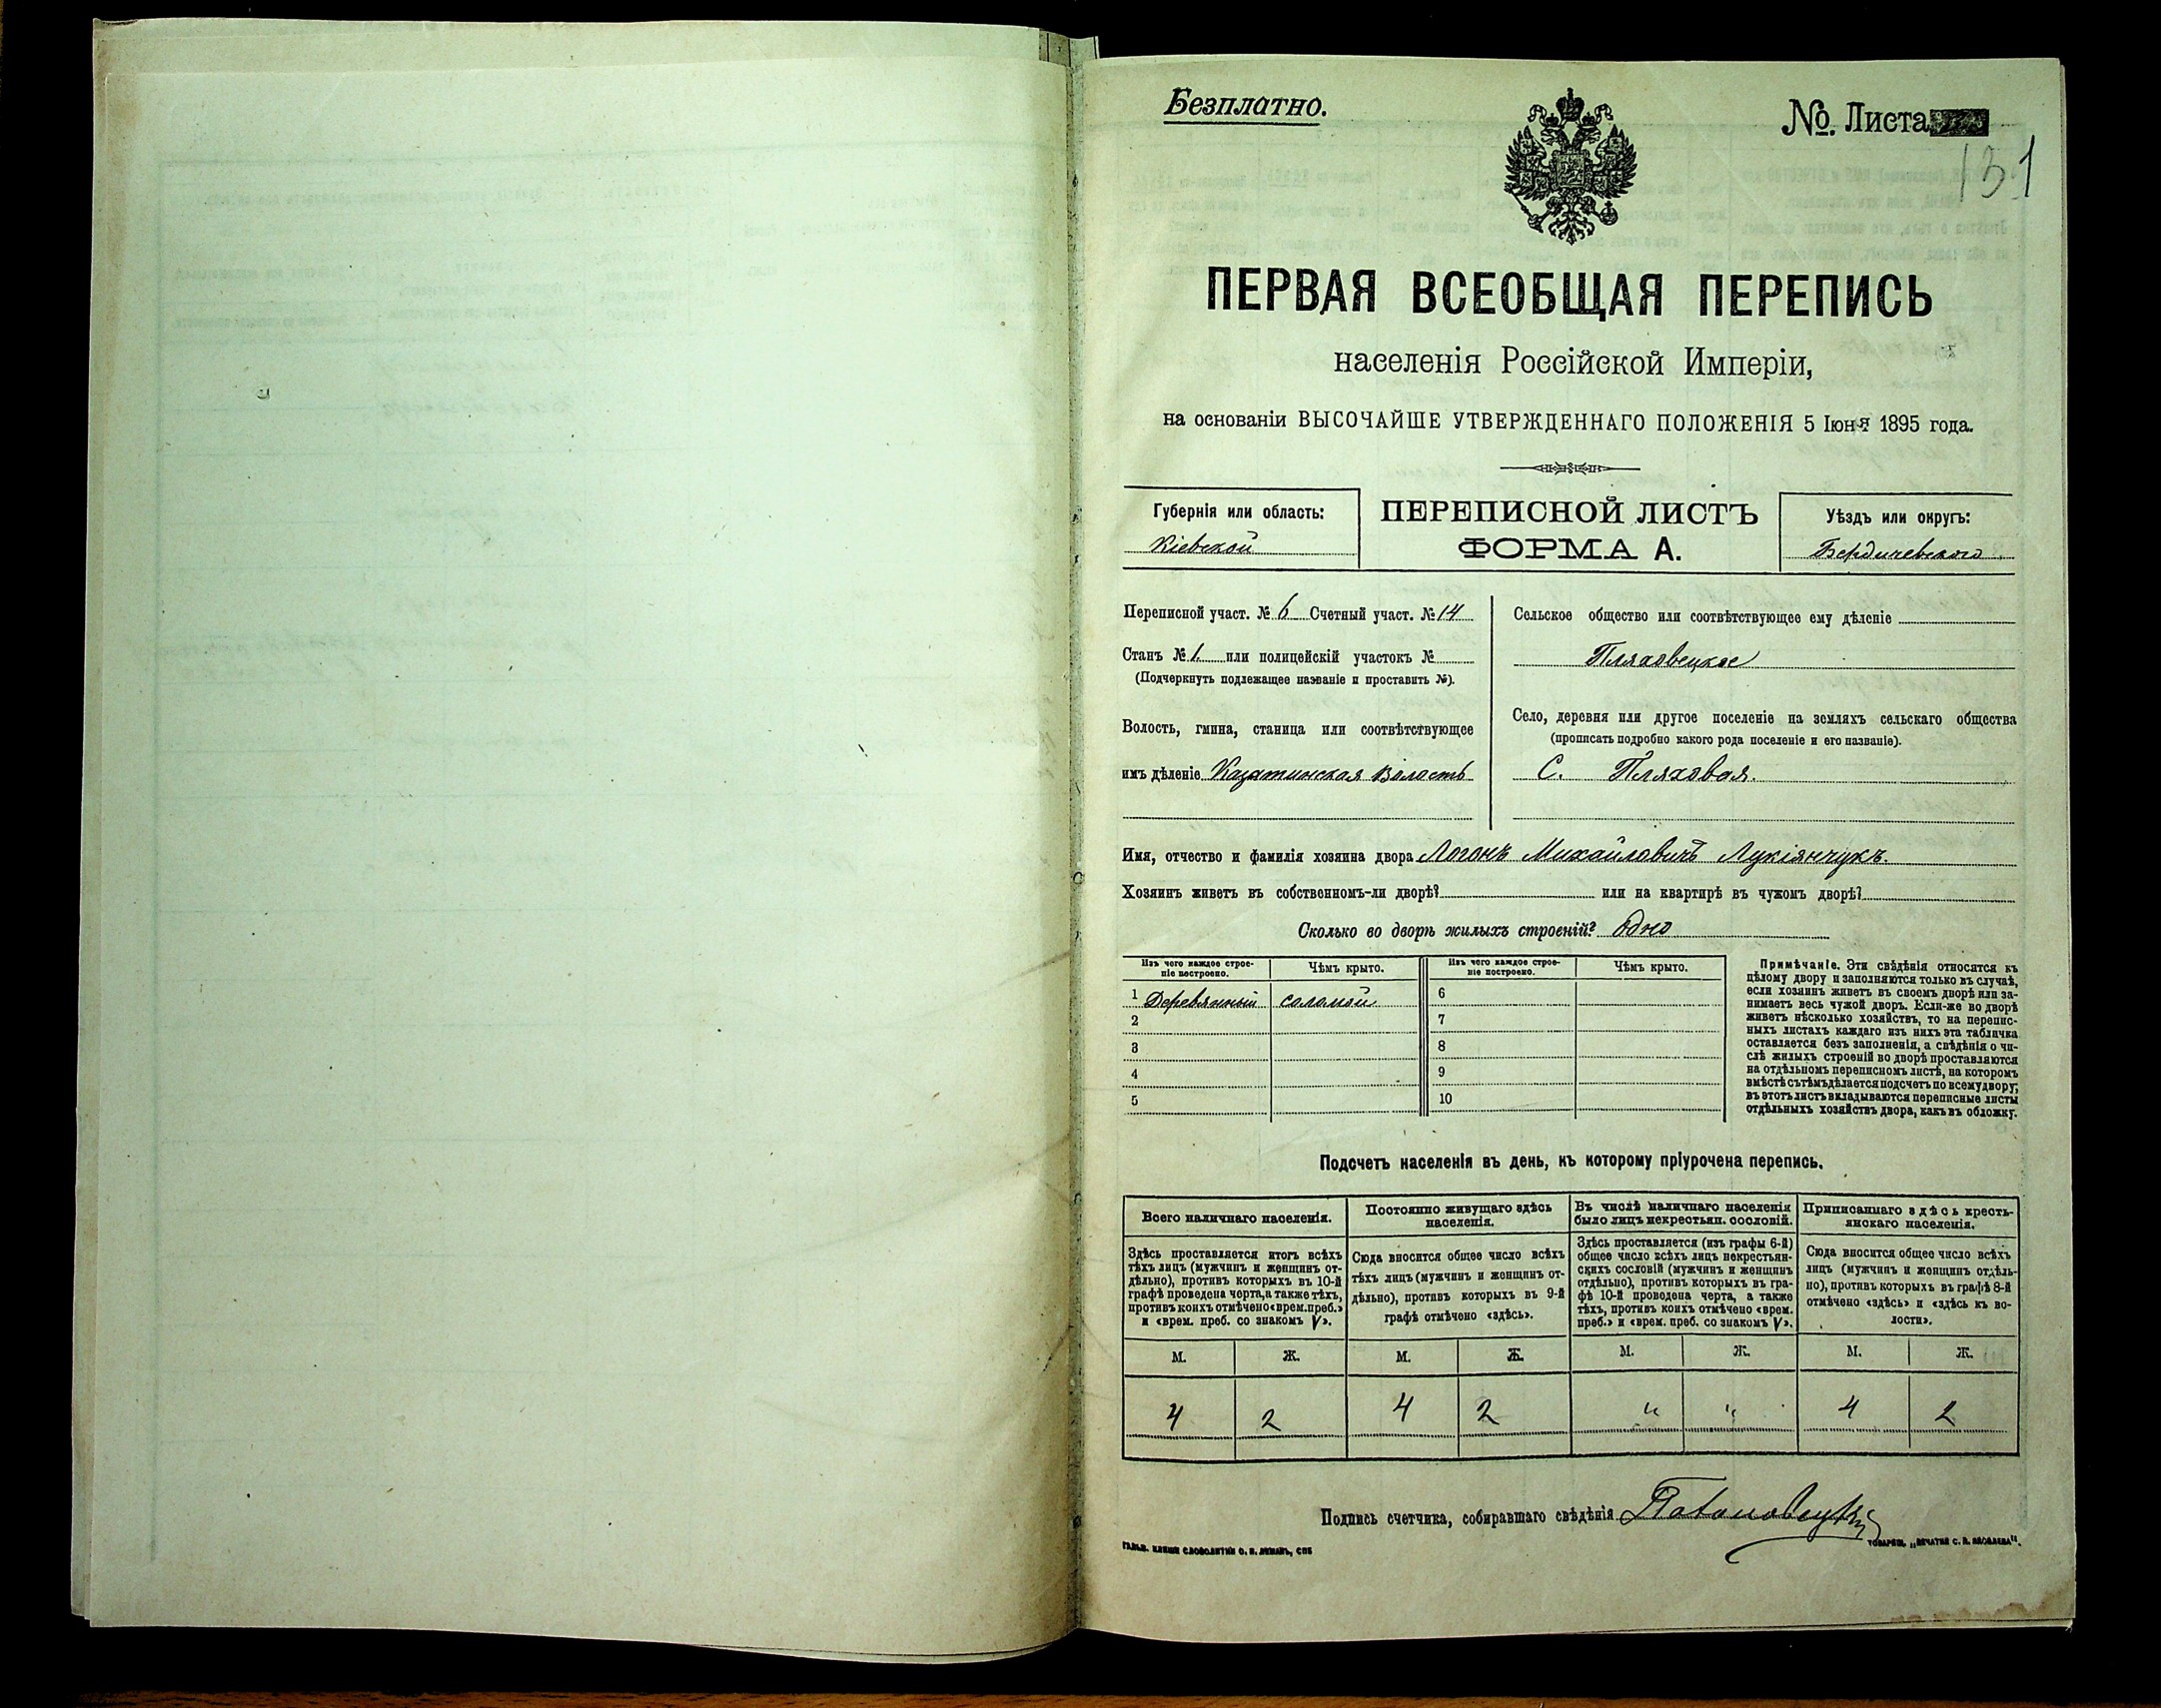 Безплатно.
№. Листа
131
ПЕРВАЯ ВСЕОБЩАЯ ПЕРЕПИСЬ
населенія Россійской Имперіи,
на основаніи ВЫСОЧАЙШЕ УТВЕРЖДЕННАГО ПОЛОЖЕНІЯ 5 Іюня 1895 года.
Губернія или область:
Кіевской
ПЕРЕПИСНОЙ ЛИСТЪ
ФОРМА А.
Уѣздъ или округъ:
Бердичевского
Переписной участ. № 6 Счетный участ. № 14
Станъ № 1. или полицейскій участокъ №
(Подчеркнуть подлежащее названіе и проставить №).
Волость, гмина, станица или соотвѣтствующее
имъ дѣленіе Казатинская Волость
Сельское общество или соотвѣтствующее ему дѣленіе
Пляховецкое
Село, деревня или другое поселеніе на земляхъ сельскаго общества
(прописать подробно какого рода поселеніе и его названіе).
С. Пляховая.
Имя, отчество и фамилія хозяина двора Логонъ Михайловичъ Лукіянчукъ.
Хозяинъ живетъ въ собственномъ-ли дворѣ? или на квартирѣ въ чужомъ дворѣ?
Сколько во дворѣ жилыхъ строеній? Одно
Изъ чего каждое строе-
ніе построено.
Чѣмъ крыто.
Изъ чего каждое строе-
ніе построено.
Чѣмъ крыто.
1 Деревянный соломой 6
2 7
3 8
4 9
5 10
Примѣчаніе. Эти свѣдѣнія относятся къ
цѣлому двору и заполняются только въ случаѣ,
если хозяинъ живетъ въ своемъ дворѣ или за-
нимаетъ весь чужой дворъ. Если-же во дворѣ
живетъ нѣсколько хозяйствъ, то на перепис-
ныхъ листахъ каждаго изъ нихъ эта табличка
оставляется безъ заполненія, а свѣдѣнія о чи-
слѣ жилыхъ строеній во дворѣ проставляются
на отдѣльномъ переписномъ листѣ, на которомъ
вмѣстѣ съ тѣмъ дѣлается подсчетъ по всему двору;
въ этотъ листъ вкладываются переписные листы
отдѣльныхъ хозяйствъ двора, какъ въ обложку.
Подсчетъ населенія въ день, къ которому пріурочена перепись.
Всего наличнаго населенія.
Здѣсь проставляется итогъ всѣхъ
тѣхъ лицъ (мужчинъ и женщинъ от-
дѣльно), противъ которыхъ въ 10-й
графѣ проведена черта, а также тѣхъ,
противъ коихъ отмѣчено «врем. преб.»
и «врем. преб. со знакомъ V».
Постоянно живущаго здѣсь
населенія.
Сюда вносится общее число всѣхъ
тѣхъ лицъ (мужчинъ и женщинъ от-
дѣльно), противъ которыхъ въ 9-й
графѣ отмѣчено «здѣсь».
Въ числѣ наличнаго населенія
было лицъ некрестьян. сословій.
Здѣсь проставляется (изъ графы 6-й)
общее число всѣхъ лицъ некрестьян-
скихъ сословій (мужчинъ и женщинъ
отдѣльно), противъ которыхъ въ гра-
фѣ 10-й проведена черта, а также
тѣхъ, противъ коихъ отмѣчено «врем.
преб.» и «врем. преб. со знакомъ V».
Приписаннаго здѣсь кресть-
янскаго населенія.
Сюда вносится общее число всѣхъ
лицъ (мужчинъ и женщинъ отдѣль-
но), противъ которыхъ въ графѣ 8-й
отмѣчено «здѣсь» и «здѣсь къ во-
лости».
М. Ж. М. Ж. М. Ж. М. Ж.
4 2 4 2 " " 4 2
Подпись счетчика, собиравшаго свѣдѣнія
ГАЛЬВ. КЛИШЕ СЛОВОЛИТНИ О. И. ЛЕМАНЪ, СПБ
ТОВАРИЩ. „ПЕЧАТНЯ С. П. ЯКОВЛЕВА".